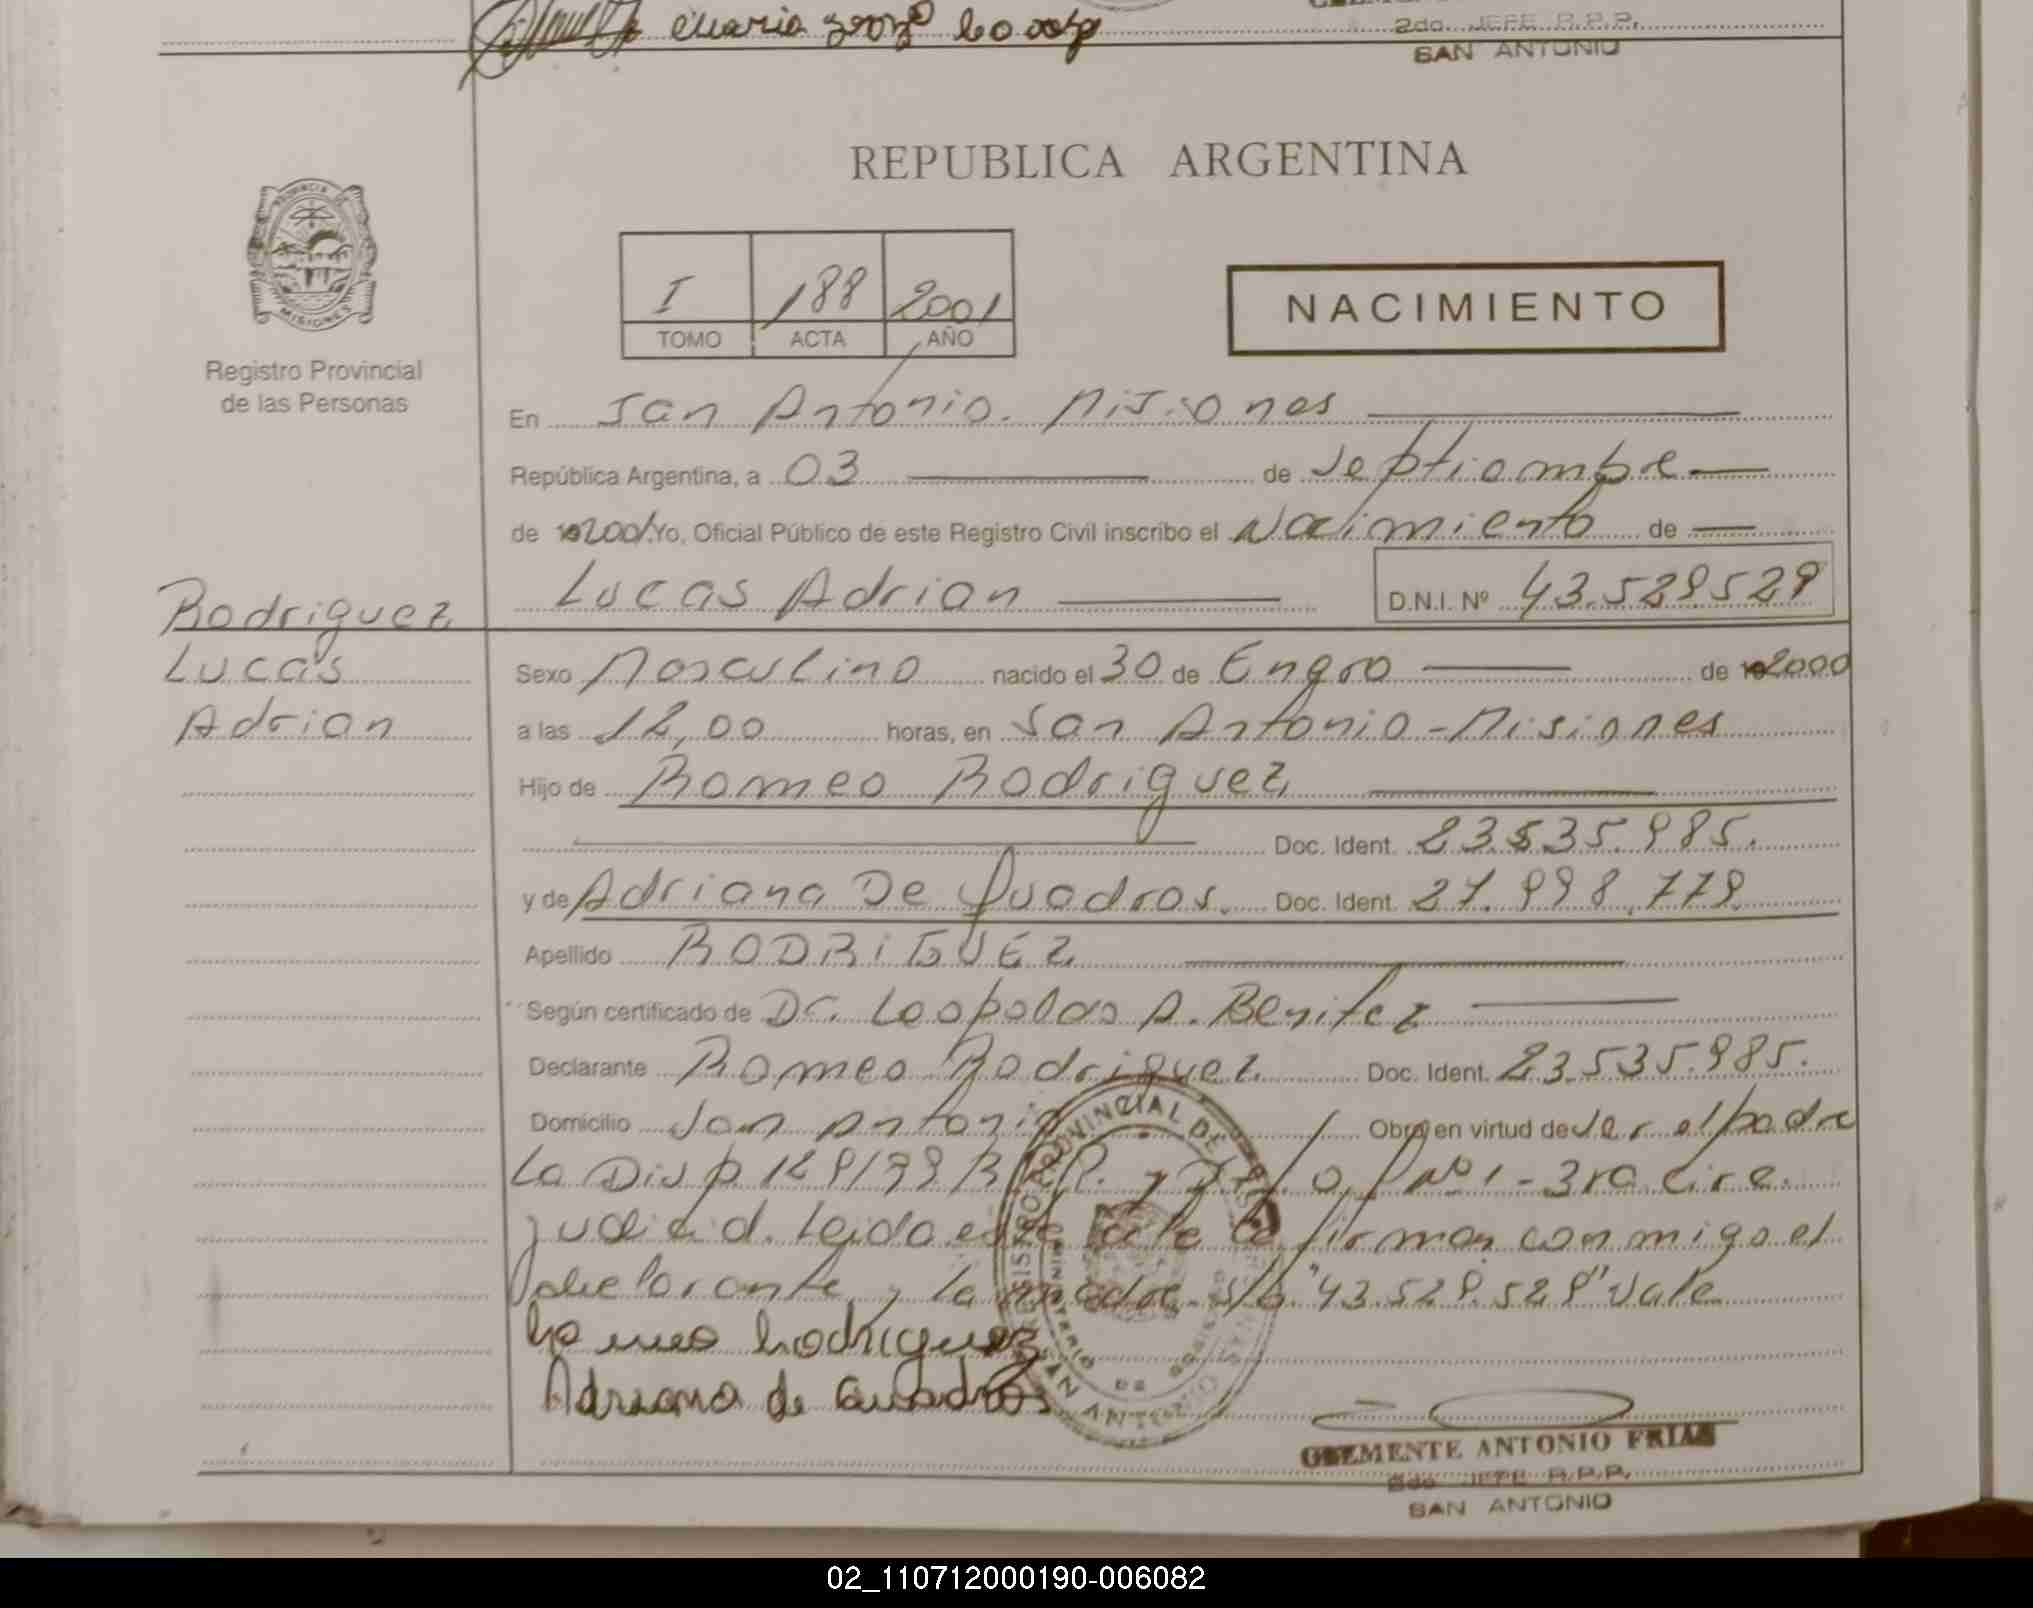 Maria
2do. JEFE R.P.P.
SAN ANTONIO
REPUBLICA ARGENTINA
PROVINCIA DE
MISIONES
Registro Provincial
de las Personas
I 188 2001
TOMO ACTA AÑO
NACIMIENTO
En San Antonio. Misiones
República Argentina, a 03 de Septiembre
de 2001. Yo, Oficial Público de este Registro Civil inscribo el Nacimiento de
Lucas Adrian D.N.I. Nº 43.529529
Rodriguez
Lucas
Adrian
Sexo Masculino nacido el 30 de Enero de 2000
a las 12,00 horas, en San Antonio - Misiones
Hijo de Romeo Rodriguez
Doc. Ident. 23.535.985.
y de Adriana De Quadros. Doc. Ident. 27.998.779.
Apellido RODRIGUEZ
Según certificado de Dr. Leopoldo A. Benitez
Declarante Romeo Rodriguez Doc. Ident. 23.535.985.
Domicilio San Antonio Obra en virtud de ser el padre
La Disp. 129/99 R.P.P. y Nº 1 - 3ra Circ.
Judicial. Leido este firman conmigo el
declarante y la madre. S/b "43.529.529" Vale
Romeo Rodriguez
Adriana de Quadros
REGISTRO PROVINCIAL DE LAS
SAN ANTONIO
CLEMENTE ANTONIO FRIAS
2do. JEFE R.P.P.
SAN ANTONIO
02_110712000190-006082